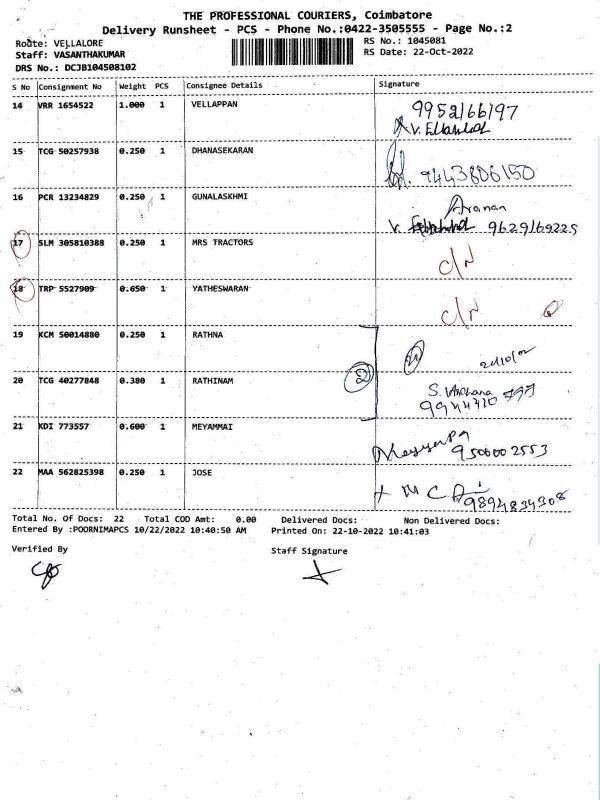 THE PROFESSIONAL COURIERS, Coimbatore
Delivery Runsheet - PCS - Phone No.:0422-3505555 - Page No.:2
Route: VELLALORE
RS No.: 1045081
Staff: VASANTHAKUMAR
RS Date: 22-Oct-2022
DRS No.: DCJB104508102
S No Consignment No Weight PCS Consignee Details Signature
14 VRR 1654522 1.000 1 VELLAPPAN 9952166197
15 TCG 50257938 0.250 1 DHANASEKARAN 9443806150
16 PCR 13234829 0.250 1 GUNALASKHMI
V. 9629169225
17 SLM 305810388 0.250 1 MRS TRACTORS C/N
18 TRP 5527909 0.650 1 YATHESWARAN C/N
19 KCM 50014880 0.250 1 RATHNA
20 TCG 40277848 0.380 1 RATHINAM 2 S. Archana
21 KDI 773557 0.600 1 MEYAMMAI
9500002553
22 MAA 562825398 0.250 1 JOSE
9894834308
Total No. Of Docs: 22 Total COD Amt: 0.00 Delivered Docs: Non Delivered Docs:
Entered By :POORNIMAPCS 10/22/2022 10:40:50 AM Printed On: 22-10-2022 10:41:03
Verified By Staff Signature